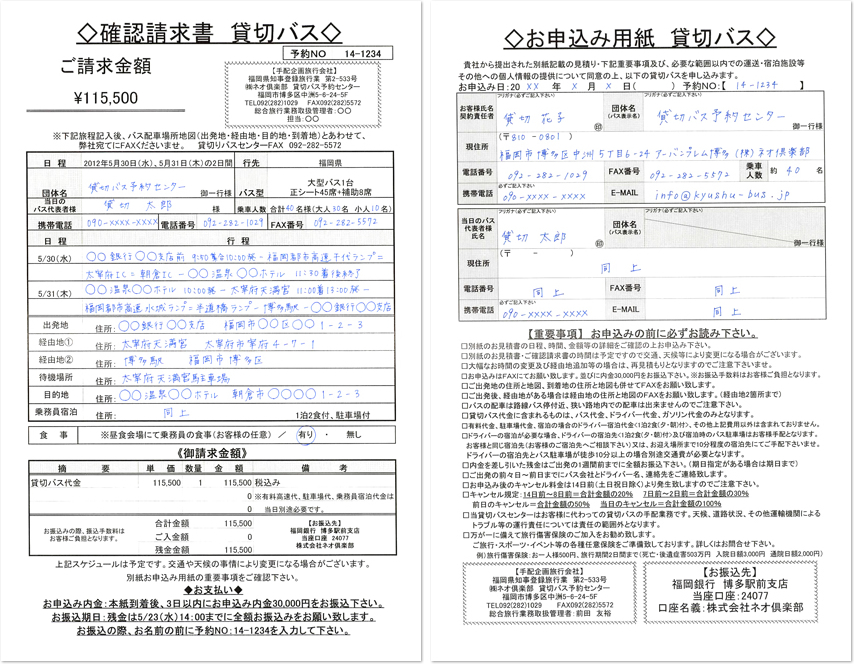 ◇確認請求書 貸切バス◇
予約NO 14-1234
ご請求金額
¥115,500
【手配企画旅行会社】
福岡県知事登録旅行業 第2-533号
㈱ネオ俱楽部 貸切バス予約センター
福岡市博多区中洲5-6-24-5F
TEL092(282)1029 FAX092(282)5572
総合旅行業務取扱管理者:
担当:○○
※下記旅程記入後、バス配車場所地図(出発地・経由地・目的地・到着地)とあわせて、
弊社宛てにFAXくださいませ。 貸切りバスセンターFAX 092-282-5572
日 程 2012年5月30日(水)、5月31日(木)の2日間 行先 福岡県
団体名 貸切バス予約センター 御一行様 バス型 大型バス1台
正シート45席・補助8席
当日の
バス代表者様 貸切 太郎 様 乗車人数 合計40名様(大人30名 小人10名)
携帯電話 090-XXXX-XXXX 電話番号 092-282-1029 FAX番号 092-282-5572
日 程 行 程
5/30(水) ○○銀行○○支店前 9:50集合10:00発-福岡都市高速千代ランプ=
太宰府IC=朝倉IC-○○温泉○○ホテル 11:30着後終了
5/31(木) ○○温泉○○ホテル 10:00発-太宰府天満宮 11:00着13:00発-
福岡都市高速水城ランプ=半道橋ランプ-博多駅-○○銀行○○支店
出発地 住所:○○銀行○○支店 福岡市○○区○○1-2-3
経由地① 住所:太宰府天満宮 太宰府市宰府4-7-1
経由地② 住所:博多駅 福岡市博多区
待機場所 住所:太宰府天満宮駐車場
目的地 住所:○○温泉○○ホテル 朝倉市○○○○1-2-3
乗務員宿泊 住所: 同上 1泊2食付、駐車場付
食 事 ※昼食会場にて乗務員の食事(お客様の任意) / 有り ・ 無し
《御請求金額》
摘 要 単 価 数量 金 額 備 考
貸切バス代金 115,500 1 115,500 税込み
0 ※有料高速代、駐車場代、乗務員宿泊代金は
0 当日別途必要です。
お振込みの際、振込手数料は
お客様ご負担となります。
合計金額 115,500
ご入金額 0
残金金額 115,500
【お振込先】
福岡銀行 博多駅前支店
当座口座 24077
株式会社ネオ俱楽部
上記スケジュールは予定です。交通や天候の事情により変更になる場合がございます。
別紙お申込み用紙の重要事項をご確認下さい。
◆お支払い◆
お申込み内金:本紙到着後、3日以内にお申込み内金30,000円をお振込下さい。
お振込期日:残金は5/23(水)14:00までに全額お振込みをお願い致します。
お振込の際、お名前の前に予約NO:14-1234を入力して下さい。
◇お申込み用紙 貸切バス◇
貴社から提出された別紙記載の見積り・下記重要事項及び、必要な範囲以内での運送・宿泊施設等
その他への個人情報の提供について同意の上、以下の貸切バスを申し込みます。
お申込み日:20 XX 年 X 月 X 日( ) 予約NO:【 14-1234 】
お客様氏名
契約責任者 フリガナ(必ずご記入下さい) 貸切 花子 ㊞ 団体名
(バス表示名) フリガナ(必ずご記入下さい) 貸切バス予約センター 御一行様
現住所 (〒810-0801)
福岡市博多区中洲5丁目6-24 アーバンプレム博多(株)ネオ俱楽部
電話番号 092-282-1029 FAX番号 092-282-5572 乗車
人数 約 40 名
携帯電話 必ずご記入下さい 090-XXXX-XXXX E-MAIL info@kyushu-bus.jp
当日のバス
代表者様
氏名 フリガナ(必ずご記入下さい) 貸切 太郎 ㊞ 団体名
(バス表示名) フリガナ(必ずご記入下さい) 御一行様
現住所 (〒 - )
同上
電話番号 同上 FAX番号 同上
携帯電話 必ずご記入下さい 090-XXXX-XXXX E-MAIL 同上
【重要事項】 お申込みの前に必ずお読み下さい。
□別紙のお見積書の日程、時間、金額等の詳細をご確認の上お申込み下さい。
□別紙のお見積書・ご確認請求書の時間は予定ですので交通、天候等により変更になる場合がございます。
□大幅なお時間の変更及び経由地追加等の場合は、再見積もりとなりますのでご注意下さいませ。
□お申込みはFAXにてお願い致します。並びに内金30,000円をお振込下さい。※お振込手数料はお客様ご負担となります。
□ご出発地の住所と地図、到着地の住所と地図も併せてFAXをお願い致します。
□ご出発後、経由地がある場合は経由地の住所と地図のFAXをお願いします。(経由地2箇所まで)
□バスの配車は路線バス停付近、狭い路地内での配車は出来ませんのでご注意下さい。
□貸切バス代金に含まれるものは、バス代金、ドライバー代金、ガソリン代金のみとなります。
□有料代金、駐車場代金、宿泊の場合のドライバー宿泊代金<1泊2食(夕・朝)付>、その他上記費用以外は含まれておりません。
□ドライバーの宿泊が必要な場合、ドライバーの宿泊先<1泊2食(夕・朝)付>及び宿泊時のバス駐車場はお客様手配となります。
お客様と同じ宿泊先(お客様の宿泊先へご相談下さい)又は、お迎え場所まで10分程度の宿泊先にてご手配下さいませ。
ドライバーの宿泊先とバス駐車場が徒歩10分以上の場合別途交通費が必要となります。
□内金を差し引いた残金はご出発の1週間前までに全額お振込下さい。(期日指定がある場合は期日まで)
□ご出発の前々日~前日までにバス会社とドライバー名、連絡先をご連絡致します。
□お申込み後のキャンセル料金は14日前(土日祝日除く)より発生致しますのでご注意下さい。
□キャンセル規定:14日前~8日前=合計金額の20% 7日前~2日前=合計金額の30%
前日のキャンセル=合計金額の50% 当日のキャンセル=合計金額の100%
□当貸切バスセンターはお客様に代わっての貸切バスの手配業務です。天候、道路状況、その他運輸機関による
トラブル等の運行責任については責任の範囲外となります。
□万が一に備えて旅行傷害保険のご加入をお勧め致します。
ご旅行・スポーツ・イベント等の各種任意保険をご準備致しております。詳しくはお問合せ下さい。
例)旅行傷害保険:お一人様500円、旅行期間2日間まで(死亡・後遺症害503万円 入院日額3,000円 通院日額2,000円)
【手配企画旅行会社】
福岡県知事登録旅行業 第2-533号
㈱ネオ俱楽部 貸切バス予約センター
福岡市博多区中洲5-6-24-5F
TEL092(282)1029 FAX092(282)5572
総合旅行業務取扱管理者:前田 友裕
【お振込先】
福岡銀行 博多駅前支店
当座口座:24077
口座名義:株式会社ネオ俱楽部